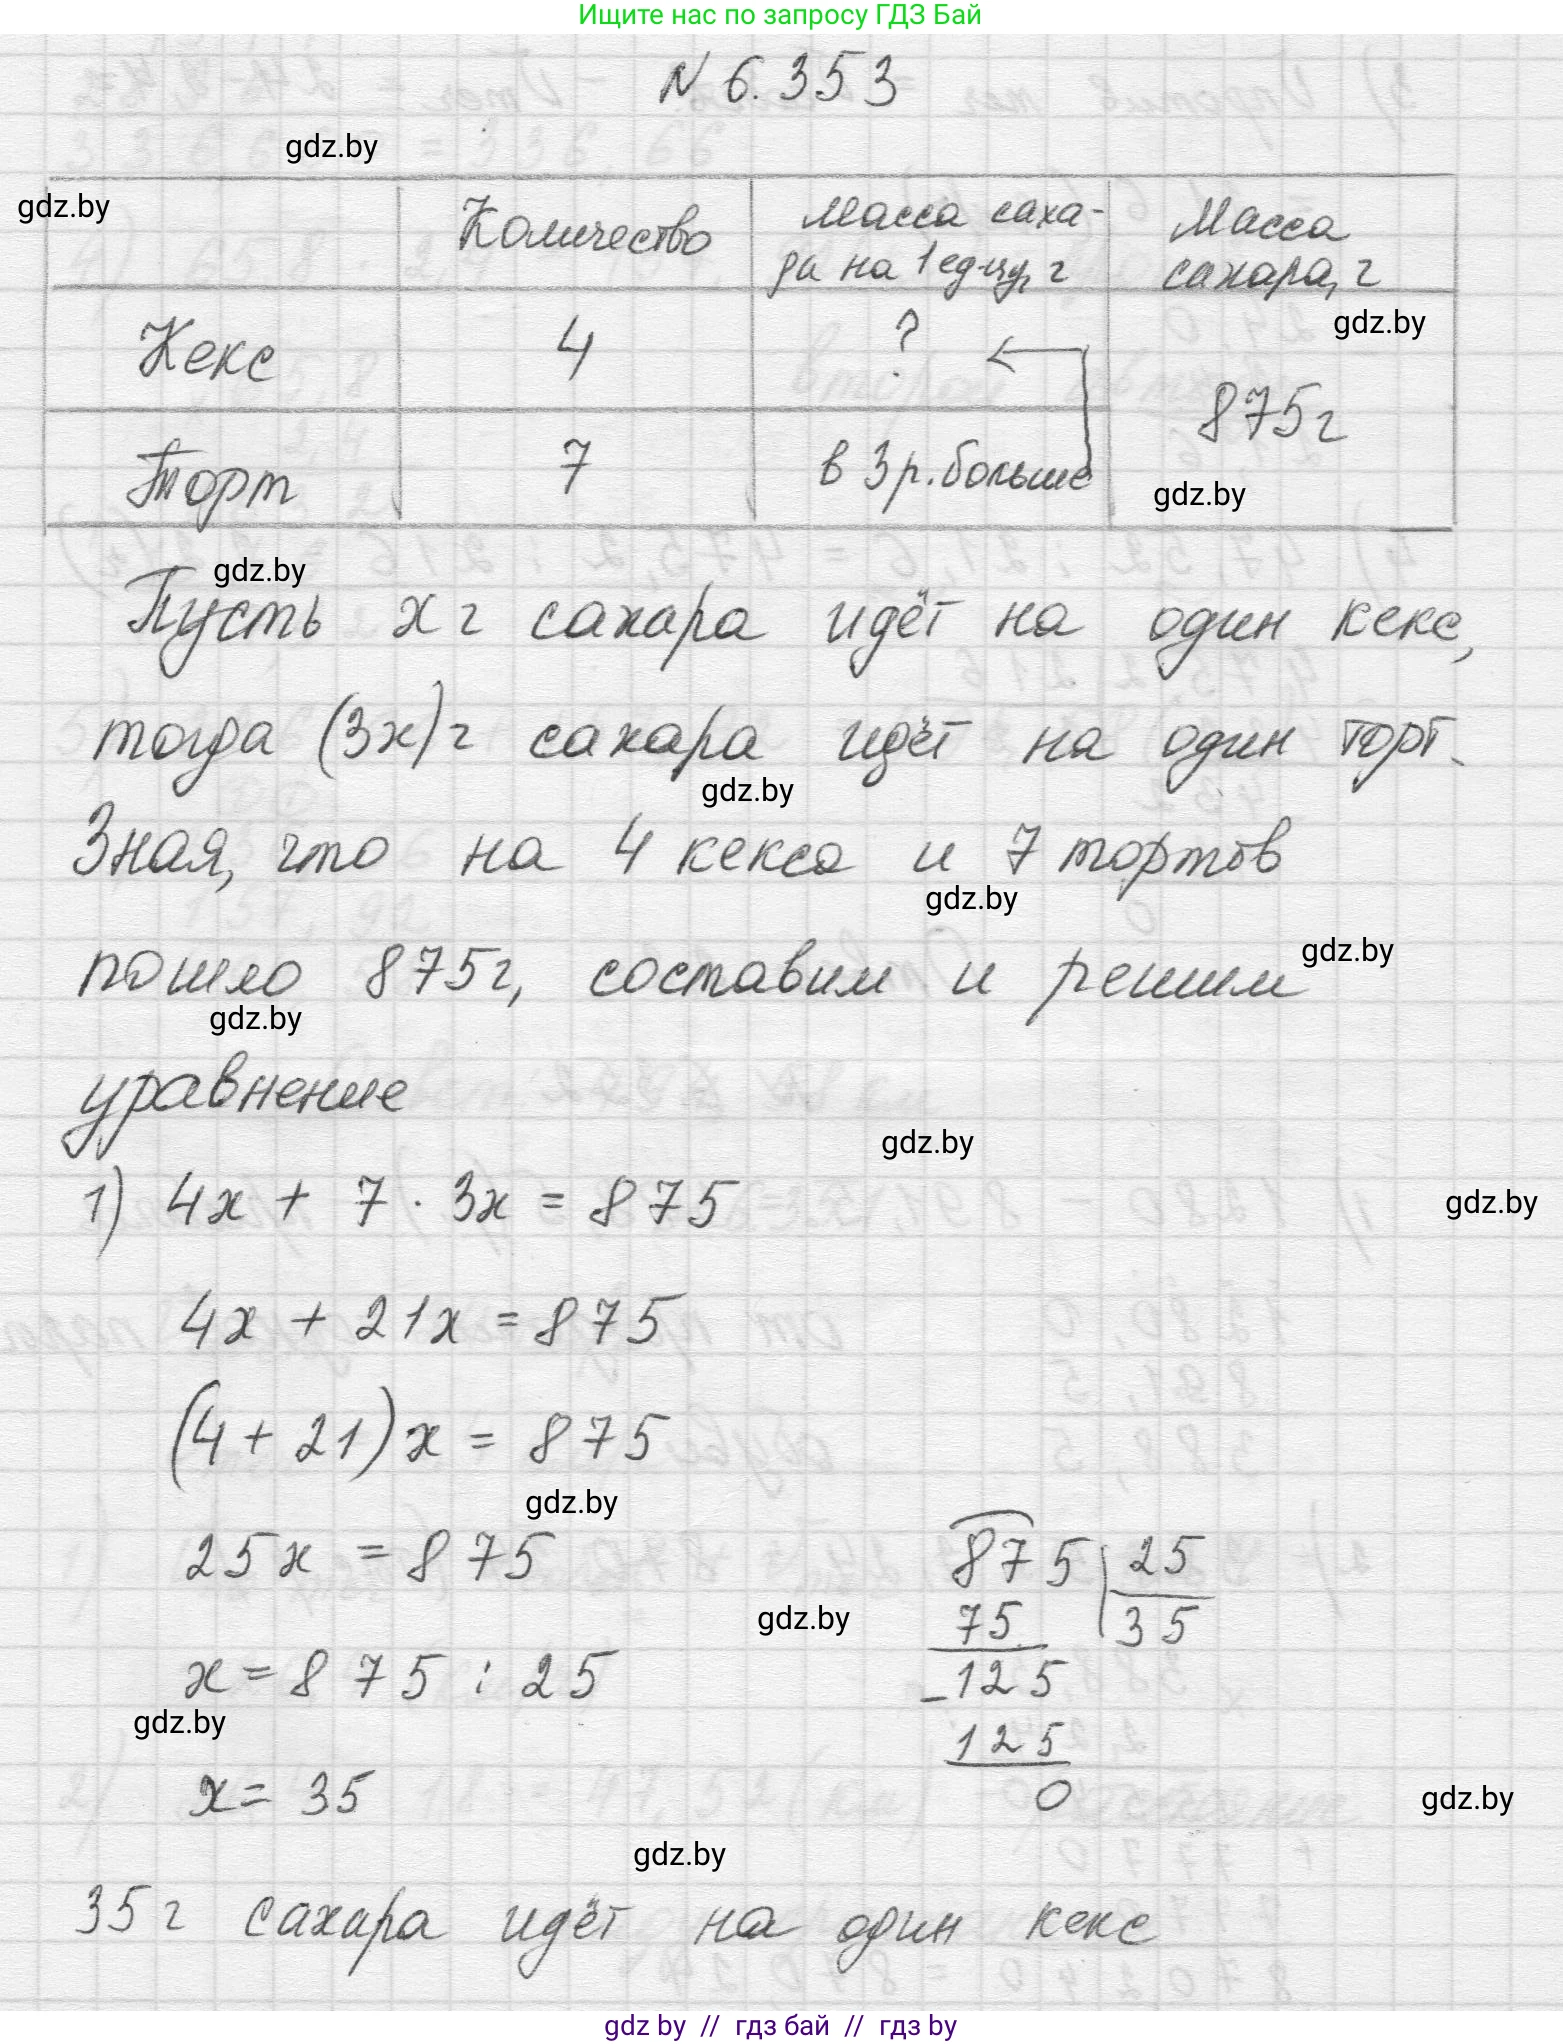 Ищите нас по запросу ГДЗ Бай
N 6.353
gdz.by
gdz.by
Количество
Масса саха-
ра на 1 ед-цу, г
Масса
сахара, г
gdz.by
Кекс
4
?
875г
Торт
7
в 3 р. больше
gdz.by
gdz.by
Пусть x г сахара идёт на один кекс,
тогда (3x) г сахара идёт на один торт.
gdz.by
Зная, что на 4 кекса и 7 тортов
gdz.by
gdz.by
пошло 875г, составим и решим
gdz.by
уравнение
gdz.by
1) 4x + 7 · 3x = 875
gdz.by
4x + 21x = 875
(4 + 21) x = 875
gdz.by
25x = 875
875 25
75 35
gdz.by
x = 875 : 25
-125
gdz.by
125
x = 35
0
gdz.by
gdz.by
35 г сахара идёт на один кекс
gdz by // гдз бай // гдз by